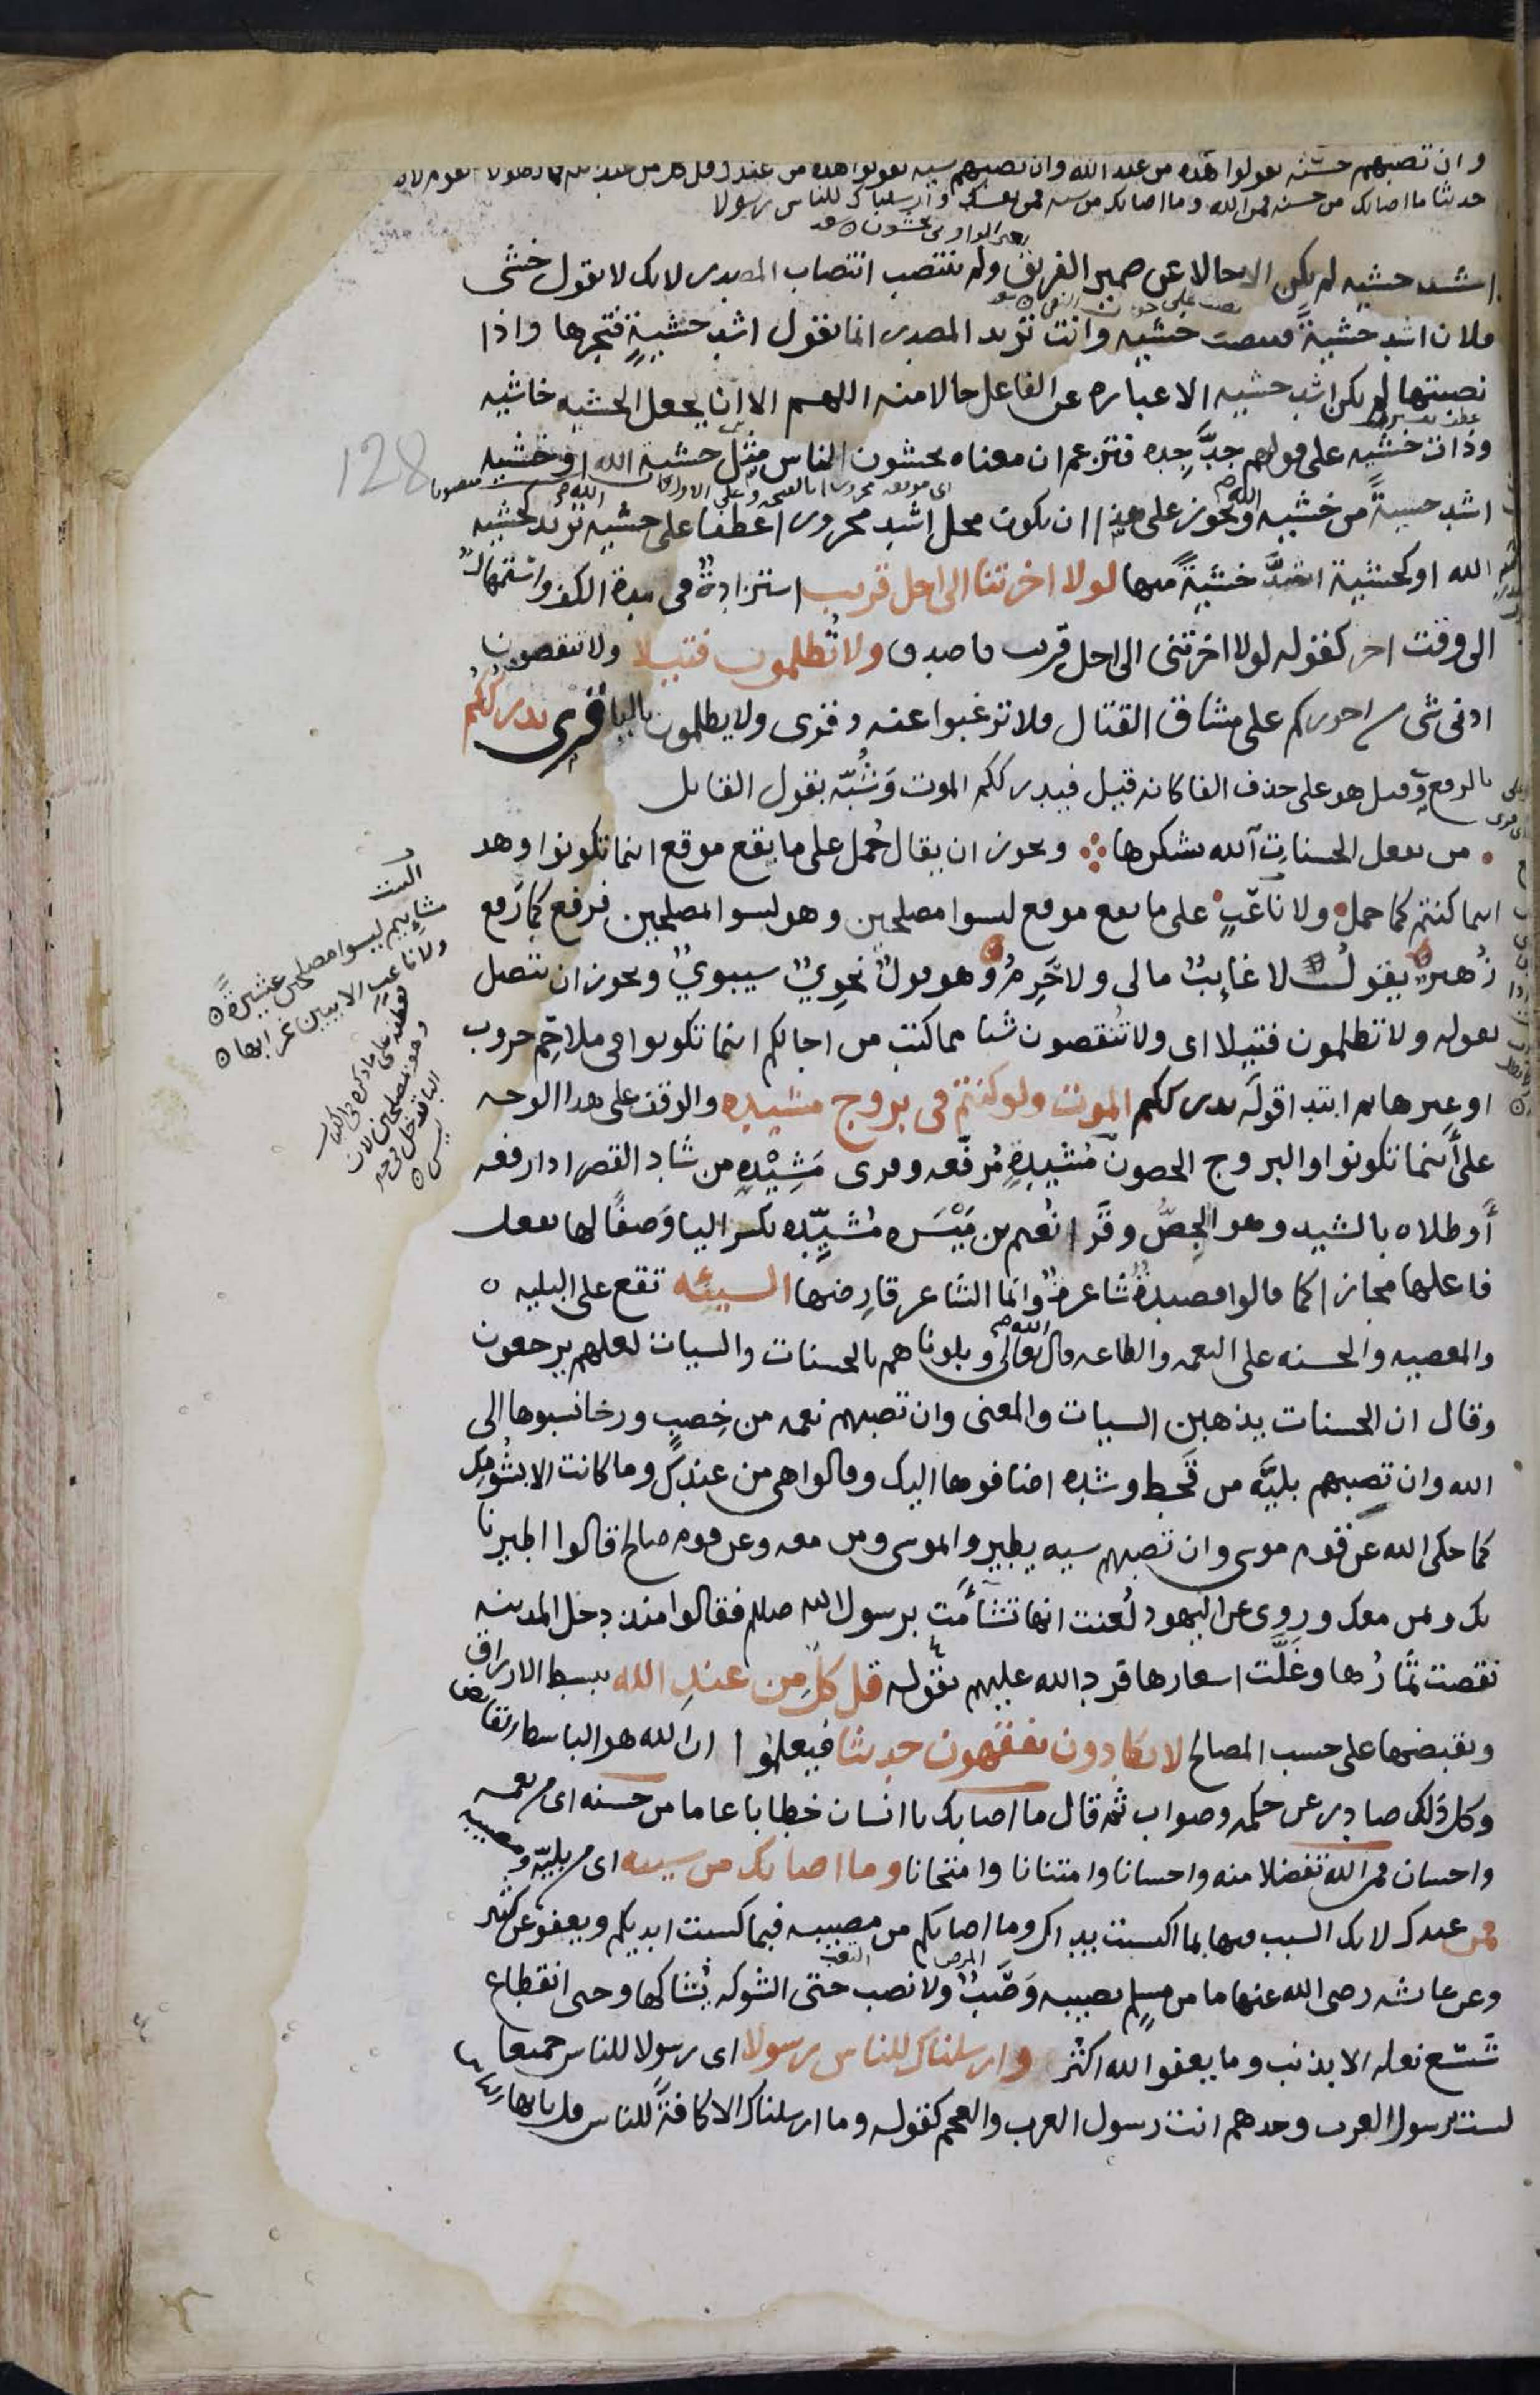 وان تصبهم حسنة يقولوا هذه من عند الله وان تصبهم سيئه يقولوا هذه من عندك قل كل من عند
حديثا ما اصابك من حسنه فمن الله وما اصابك من سيه فمن نفسك وارسلناك للناس رسولا
اشد خشيه لم يكن الا حالا عن ضمير الفريق ولم ينتصب انتصاب المصدر لانك لا تقول خشى
فلان اشد خشيةً فتنصب خشيه وانت تريد المصدر انما تقول اشد خشيةٍ فتجرها واذا
نصبتها لم يكن اشد خشيه الا عباره عن الفاعل حالا منه اللهم الا ان يجعل الخشيه خاشيه
وذات خشيه على قولهم جدَّ جِده فتزعم ان معناه يخشون الناس مثل خشية الله او خشيه
128
اشد خشيةً من خشيه الله ويجوز على هذا ان يكون محل اشد مجرورا عطفا على خشيه تريد كخشيه
الله او كخشية اشدَّ خشيةً منها لولا اخرتنا الى اجل قريب استزادةٌ فى مدة الكف واستمهالٌ
الى وقت اخر كقوله لولا اخرتنى الى اجل قريب فاصدق ولا تُظلمون فتيلا ولا تنقصون
ادنى شى من اجوركم على مشاق القتال فلا ترغبوا عنه وقرى ولا يظلمون باليا قرى يدرككم
بالرفع وقيل هو على حذف الفا كانه قيل فيدرككم الموت وَشُبّه بقول القايل
من يفعل الحسنات الله يشكرها ويجوز ان يقال حُمل على ما يقع موقع اينما تكونوا وهو
اينما كنتم كما حمل ولا ناعبٍ على ما يقع موقع ليسوا مصلحين وهو ليسوا بمصلحين فرفع كما رَفع
زُهير يقولُ لا غايبٌ مالى ولا حَرِمُ وهو قولٌ نحوىٌ سيبوىٌ ويجوز ان يتصل
بقوله ولا تظلمون فتيلا اى ولا تُنقصون شيا مما كتب من اجالكم اينما تكونوا فى ملاحِم حروب
او غيرها ثم ابتدا قولَه يدرككم الموت ولو كنتم فى بروج مشيده والوقف على هذا الوجه
على أينما تكونوا والبروج الحصون مُشيدةٍ مُرفّعه وقرى مَشِيْدةٍ من شاد القصر اذا رفعه
أو طلاه بالشيد وهو الجِصُّ وقَرا نُعيم بن مَيْسَره مُشيِّدِه بكسر اليا وَصفًا لها بفعل
فاعلها مجازا كما قالوا قصيدةٌ شاعرةٌ وانما الشاعر قارِضها السيئه تقع على البليه
والمعصيه والحسنه على النعمه والطاعه قال الله تعالى وبلوناهم بالحسنات والسيات لعلهم يرجعون
وقال ان الحسنات يذهبن السيات والمعنى وان تصبهم نعمه من خِصبٍ ورخا نسبوها الى
الله وان تصبهم بليَّه من قَحط وشده اضافوها اليك وقالوا هى من عندك وما كانت الا بشُومِك
كما حكى الله عن قوم موسى وان تصبهم سيه يطيروا بموسى ومن معه وعن قوم صالح قالوا اطيرنا
بك وبمن معك ورُوى عن اليهود لُعنت انها تشأَمت برسول الله صلعم فقالوا منذ دخل المدينه
نقصت ثمارُها وغَلَت اسعارها فرد الله عليهم بقوله قل كلٌ مِن عندِ الله يبسط الارزاق
ويقبضها على حسب المصالح لا يكادون يفقهون حديثا فيعلموا ان الله هو الباسط القابض
وكل ذلك صادر عن حكمه وصواب ثم قال ما اصابك يا انسان خطابا عاما من حسنه اى من نعمه
واحسان فمن الله تفضلا منه واحسانا وامتنانا وامتحانا وما اصابك من سيئه اى من بليّه ومصيبه
فمن عندك لانك السبب فيها بما اكتسبت يداك وما اصابكم من مصيبه فبما كسبت ايديكم ويعفو عن كثير
وعن عايشه رضى الله عنها ما من مسلمٍ يصيبه وَصَبٌ ولا نصب حتى الشوكه يُشاكها وحتى انقطاع
شسع نعله الا بذنب وما يعفوا الله اكثر وارسلناك للناس رسولا اى رسولا للناس جميعا
لست برسول العرب وحدهم انت رسول العرب والعجم كقوله وما ارسلناك الا كافةً للناس قل يا ايها
البيت
مشاييم ليسوا مصلحين عشيرةً
ولا ناعب الا ببين غرابها